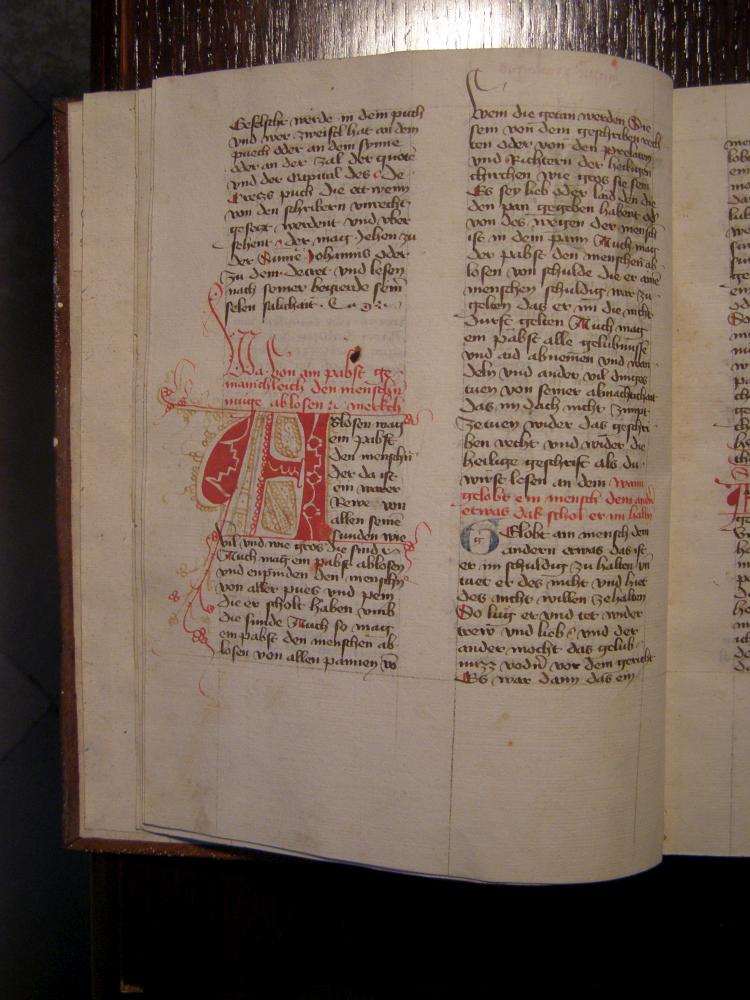 Gefelscht werde in dem puch
vnd wer zweifel hat an dem
puech oder an dem synne
oder an der zal der quote
vnd der Capital des De
cretz puch die ettwenn
von den schreibern vnrecht
gesetzt werdent vnd vber
sehent der mag sehen zu
der Sum̄e Johannis oder
zu dem decret vnd lesen
nach seiner begierde sein̄
selen salichait
Wa von ain pabst ge
mainchleich den menschn̄
muge ablosen merckch
Ablosen mag
ein pabst
den menschn̄
der da ist
ein warer
Rewer von
allen seinē
sunden wie
vil vnd wie gros die sind
Auch mag ein pabst ablosen
vnd enpinden den menschn̄
von aller pues vnd pein
die er scholt haben vmb
die sunde Auch so mag
ein pabst den menschen ab
losen von allen pannen
wem die getan werden Sie
sein von dem geschriben rech
ten oder von den prelaten
vnd Richtern der heiligen
chirchen wie gros sie sein
Es sey lieb oder laid den die
den pan gegeben habent od
von des wegen der mensch
ist in dem pann Auch mag
der pabst den menschen ab
losen von schulde die er aine
menschen schuldig war zu
gelten das er im die nicht
durft gelten Auch mag
ein pabst alle gelubnusse
vnd aid abnemen vnd wan
deln vnd ander vil dinges
tuen von seiner almachtichait
Das im doch nicht zimpt
zetuen wider das geschri
ben recht vnd wider die
heilige geschrift als du
wirst lesen an dem wann
gelobt ein mensch dem andn̄
etwas das schol er im halten
Gelobt ain mensch dem
andern etwas das ist
er im schuldig zu halten vn̄
tuet er des nicht vnd hiet
des nicht willen ze halten
So lug er vnd tet wider
trew vnd lieb vnd der
ander mocht das gelub
vodn̄ vor dem gericht
Es war dann das ein